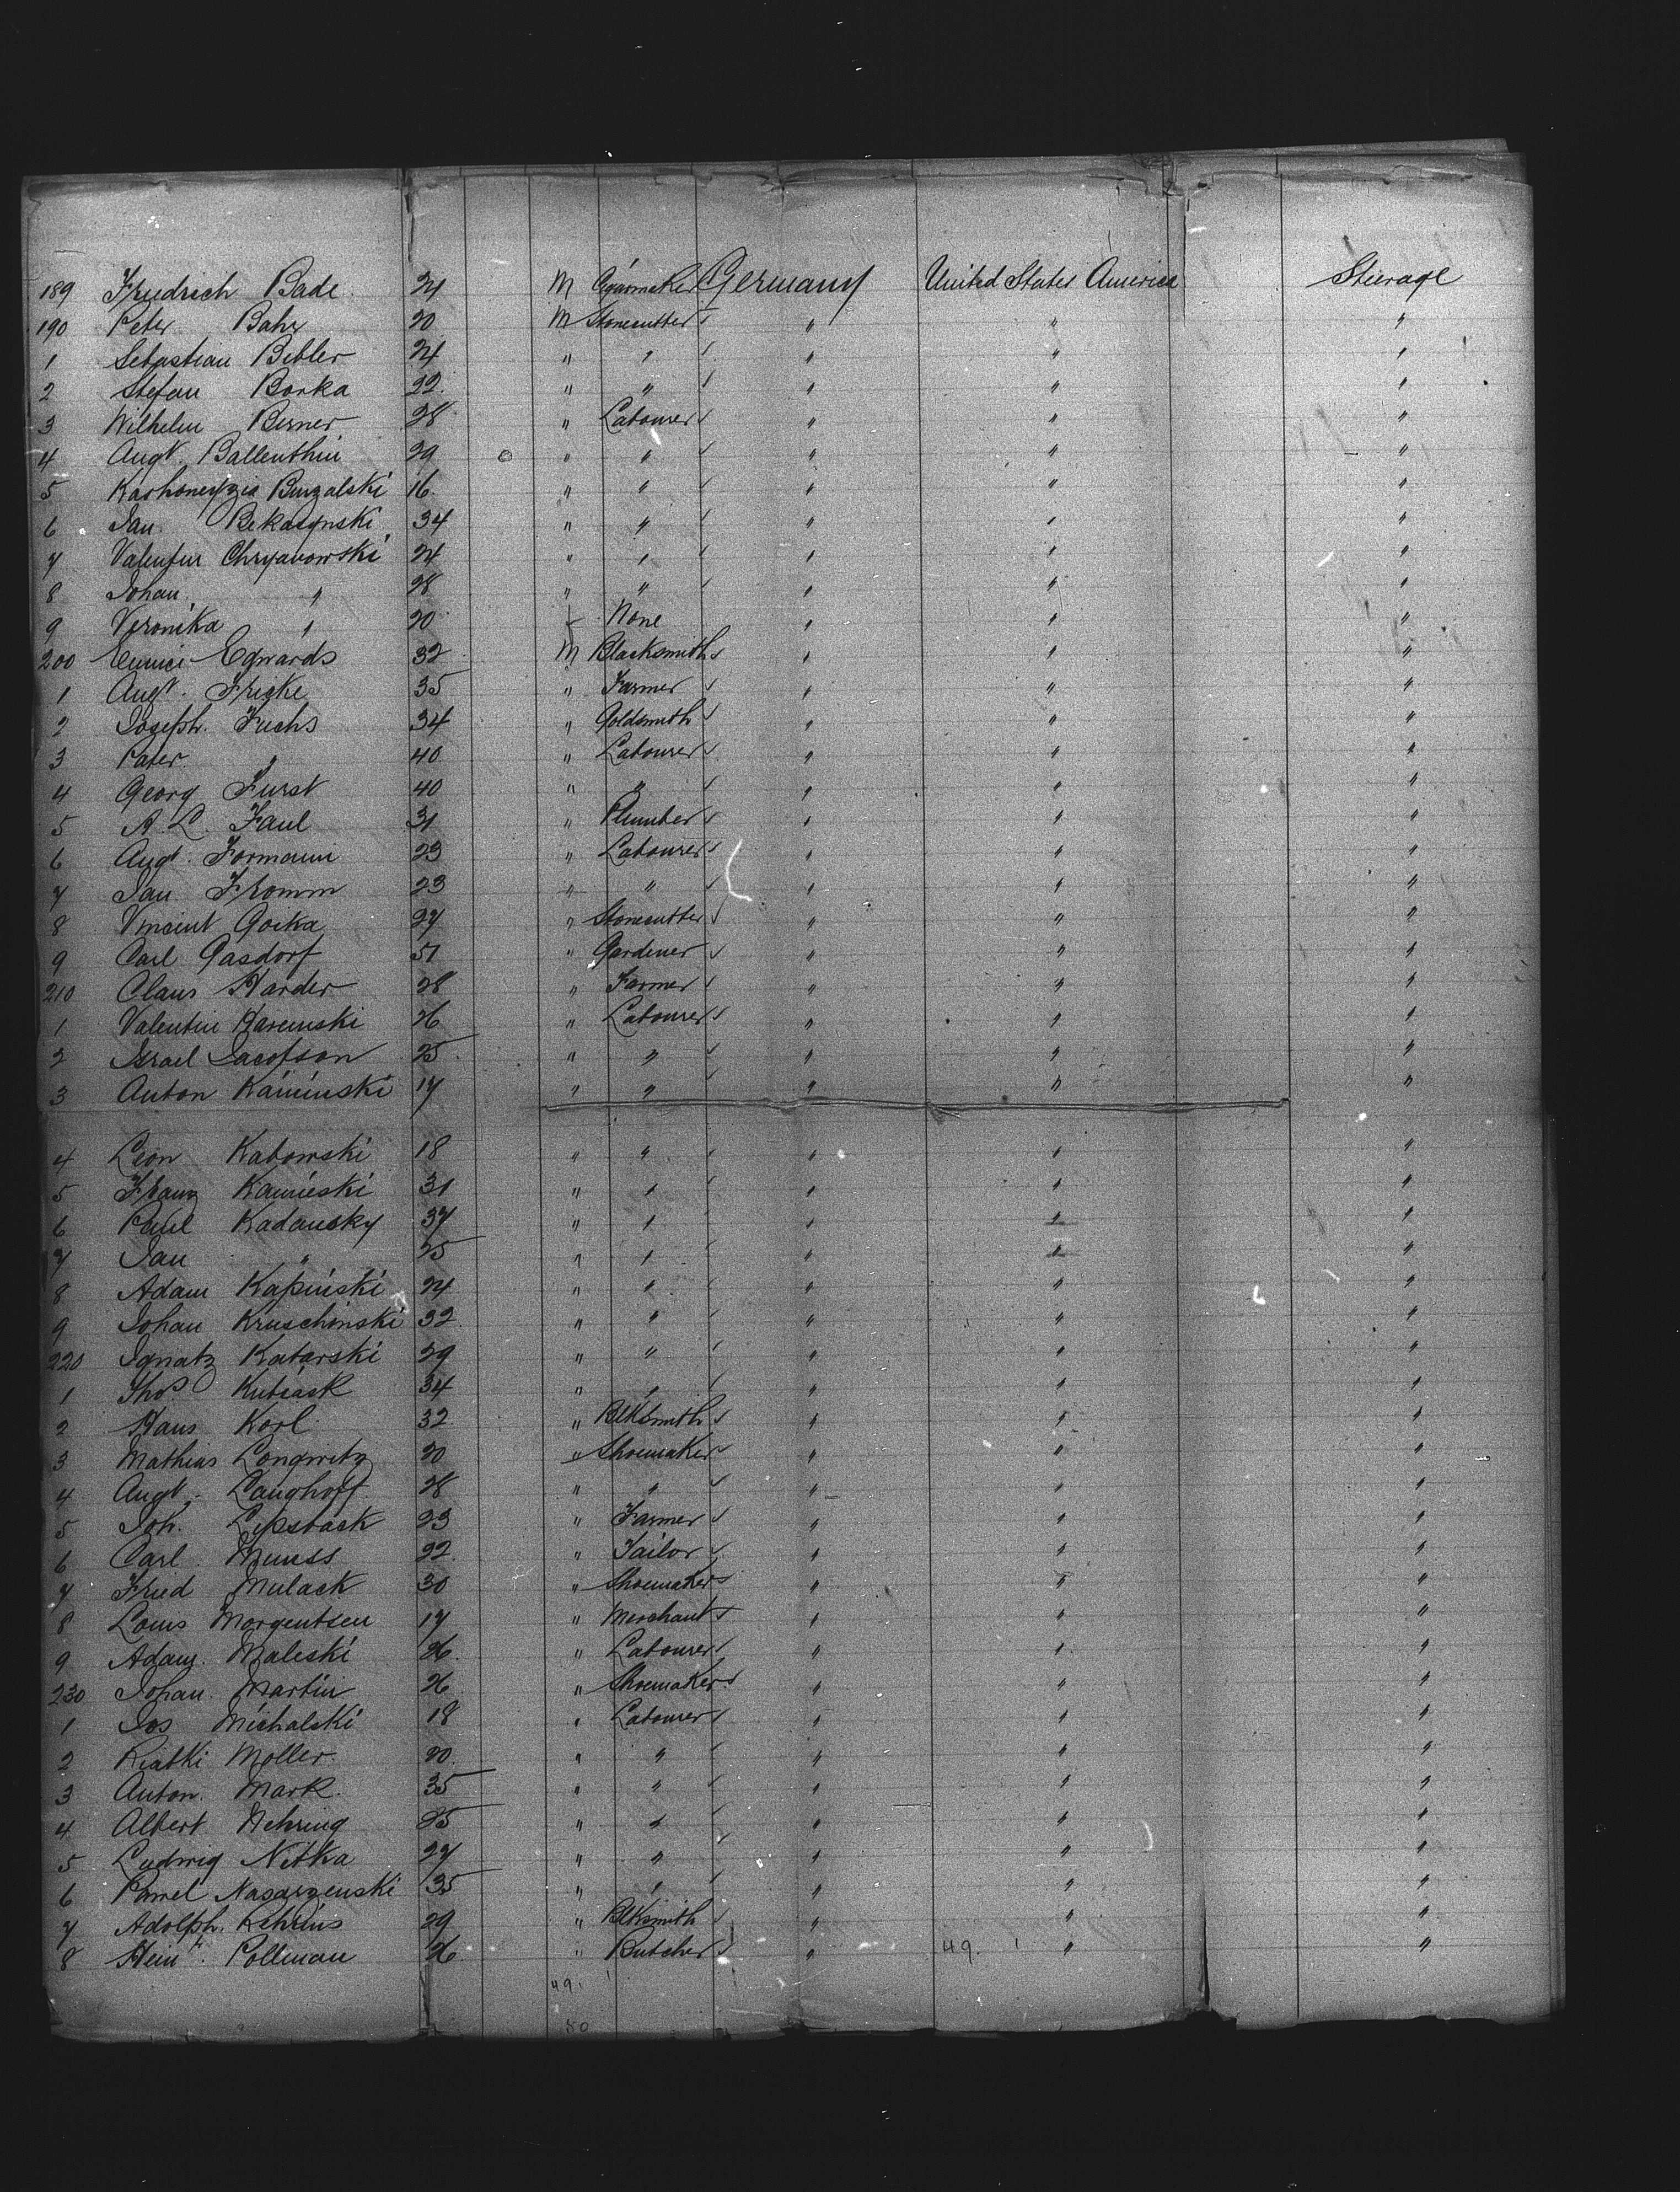 189 Friedrich Bade 24 M Cigarmaker Germany United States America Steerage
190 Peter Bahr 20 M Stonecutter " " "
1 Sebastian Bibler 24 " " " " "
2 Stefan Borka 22 " " " " "
3 Wilhelm Berner 28 " Labourer " " "
4 Augt. Ballenthin 29 " " " " "
5 Burzalski 16 " " " " "
6 Jan Bekasynski 34 " " " " "
7 Valentin Chryanowski 24 " " " " "
8 Johan " 28 " " " " "
9 Veronika " 20 f None " " "
200 Edwards 32 M Blacksmith " " "
1 Augt. Frizke 35 " Farmer " " "
2 Joseph Fuchs 34 " Goldsmith " " "
3 Pater " 40 " Labourer " " "
4 Georg Furst 40 " " " " "
5 A. L. Faul 31 " Plumber " " "
6 Augt. Formann 23 " Labourer " " "
7 Jan Fromm 23 " " " " "
8 Vincint Gocka 27 " Stonecutter " " "
9 Carl Gasdorf 51 " Gardener " " "
210 Claus Harder 28 " Farmer " " "
1 Valentin Karemski 26 " Labourer " " "
2 Israel Jacobson 25 " " " " "
3 Anton Kaminski 17 " " " " "
4 Leon Kabowski 18 " " " " "
5 Franz Kamieski 31 " " " " "
6 Paul Kadansky 37 " " " " "
7 Jan " 25 " " " " "
8 Adam Kapinski 24 " " " " "
9 Johan Kruschinski 32 " " " " "
220 Ignatz Katarski 29 " " " " "
1 Thos Kubiask 34 " " " " "
2 Hans Korl 32 " Blksmith " " "
3 Mathias Longwitz 20 " Shoemaker " " "
4 Augt. Langhoff 28 " " " " "
5 Joh. Lepsback 23 " Farmer " " "
6 Carl Muuss 22 " Tailor " " "
7 Fried Mulack 30 " Shoemaker " " "
8 Louis Morgentsen 17 " Merchant " " "
9 Adam Maleski 26 " Labourer " " "
230 Johan Martin 26 " Shoemaker " " "
1 Jos Michalski 18 " Labourer " " "
2 Riatki Moller 20 " " " " "
3 Anton Mark 35 " " " " "
4 Albert Nehring 25 " " " " "
5 Ludwig Nitka 27 " " " " "
6 Pawel Nasarzenski 35 " " " " "
7 Adolph Kehrins 29 " Blksmith " " "
8 Heinr. Pollman 26 " Butcher " 49. " "
49.
50